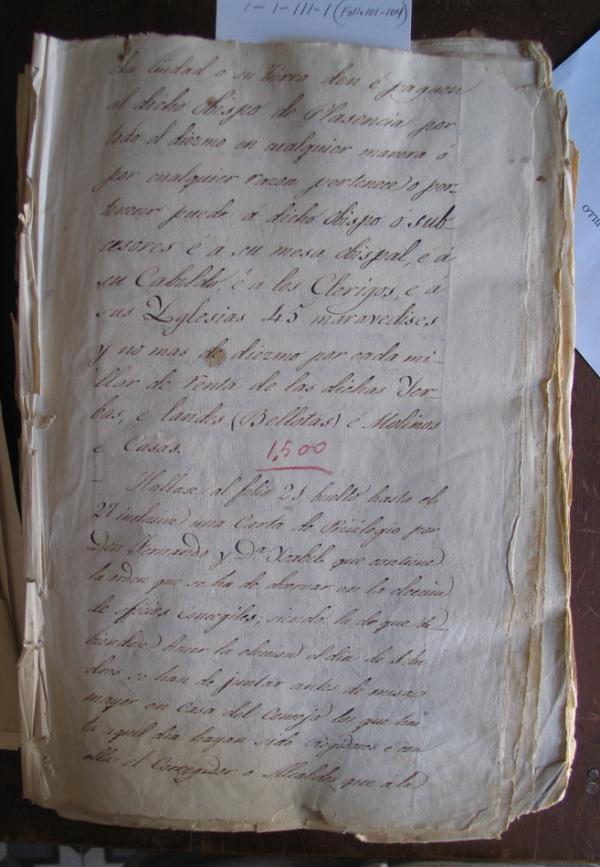 I-I-III-1 (Folio 101-104)
dha Ciudad o su tierra den é paguen
al dicho Obispo de Plasencia por
todo el diezmo en cualquier manera ó
por cualquier razon pertenece ó per-
tenecer puede á dicho Obispo ó sub-
cesores é á su mesa Obispal, é á
su Cabildo, é a los Clerigos, e á
sus Yglesias 45 maravedises
y no mas de diezmo por cada mi-
llar de renta de las dichas Yer-
bas, e landes (Bellotas) é Molinos
e Casas. 1,500
- Hallase al folio 21 buelto hasta el
27 inclusive una Carta de Privilegio por
Don Fernando y Dª Ysabel que contiene
la orden que se ha de observar en la eleccion
de oficios concegiles, siendo la de que de-
biendose hacer la eleccion el dia de
se han de juntar antes de misa
mayor en casa del Concejo los que has
ta aquel dia hayan sido regidores e con
ellos el Corregidor o Alcalde que á la